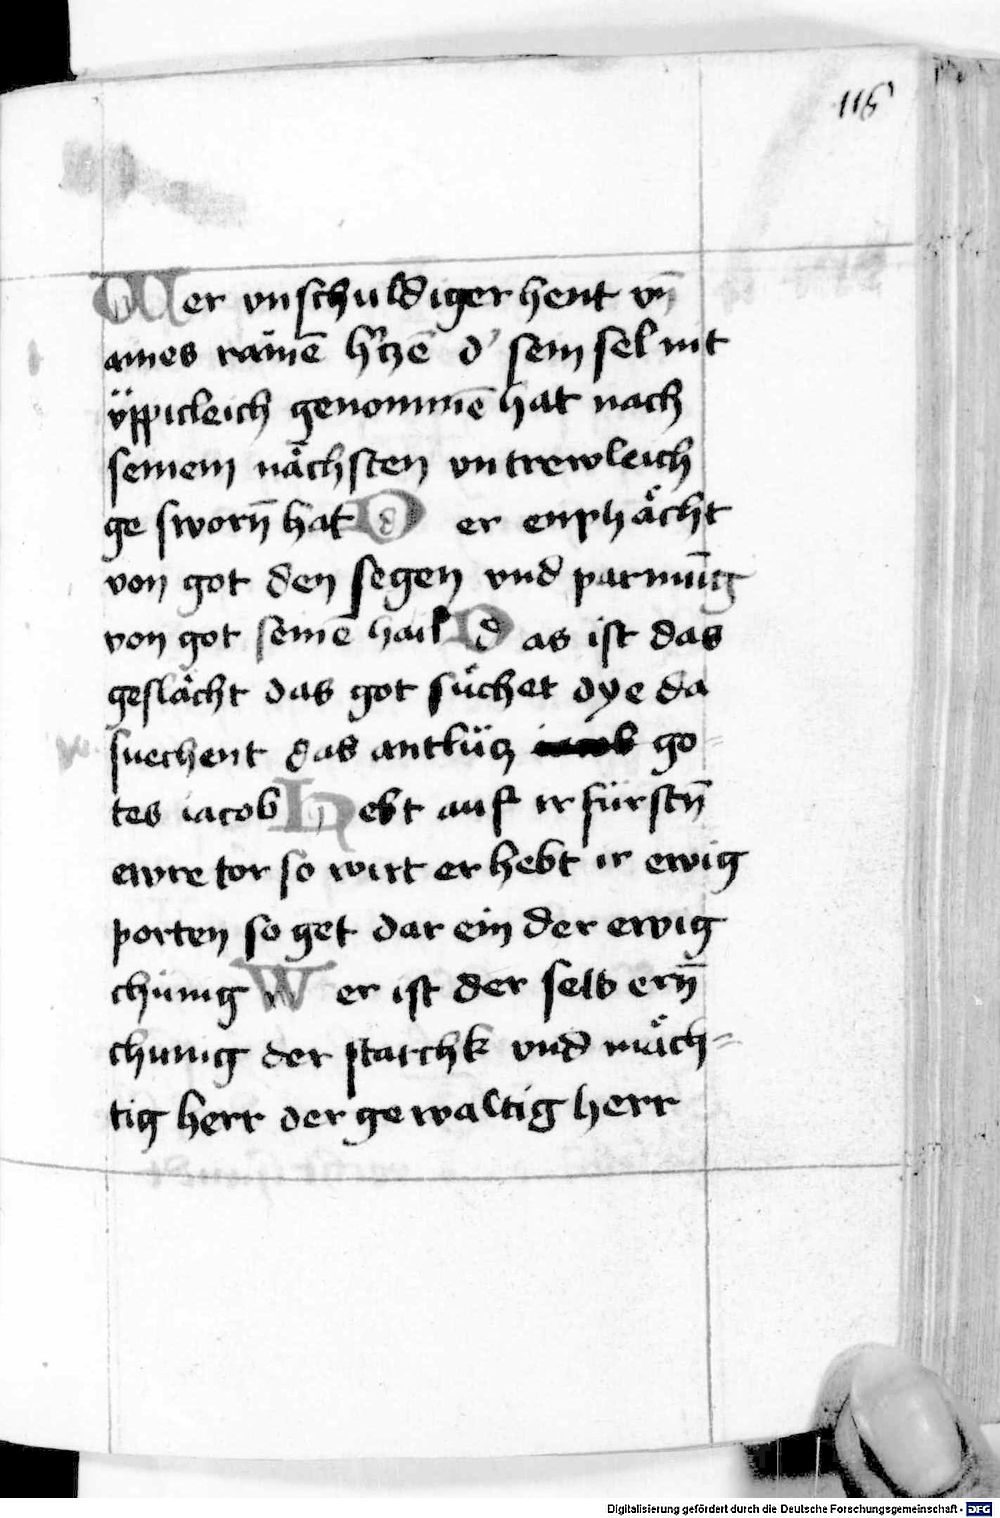 115
Wer vnschuldiger hent vn̄
aines rainē h'czē d' sein sel nit
v̈ppicleich genommē hat nach
seinem nächsten vntrewleich
ge sworn̄ hat Der enphächt
von got den segen vnd parmūg
von got seinē hail Das ist das
geslächt das got süchet dye da
suechent das antlücz go-
tes iacob Hebt auf ir fürstn̄
ewre tor so wirt er hebt ir ewig
porten so get dar ein der ewig
chünig Wer ist der selb ern̄
chunig der starchk vnd mäch-
tig herr der gewaltig herr
Digitalisierung gefördert durch die Deutsche Forschungsgemeinschaft - DFG